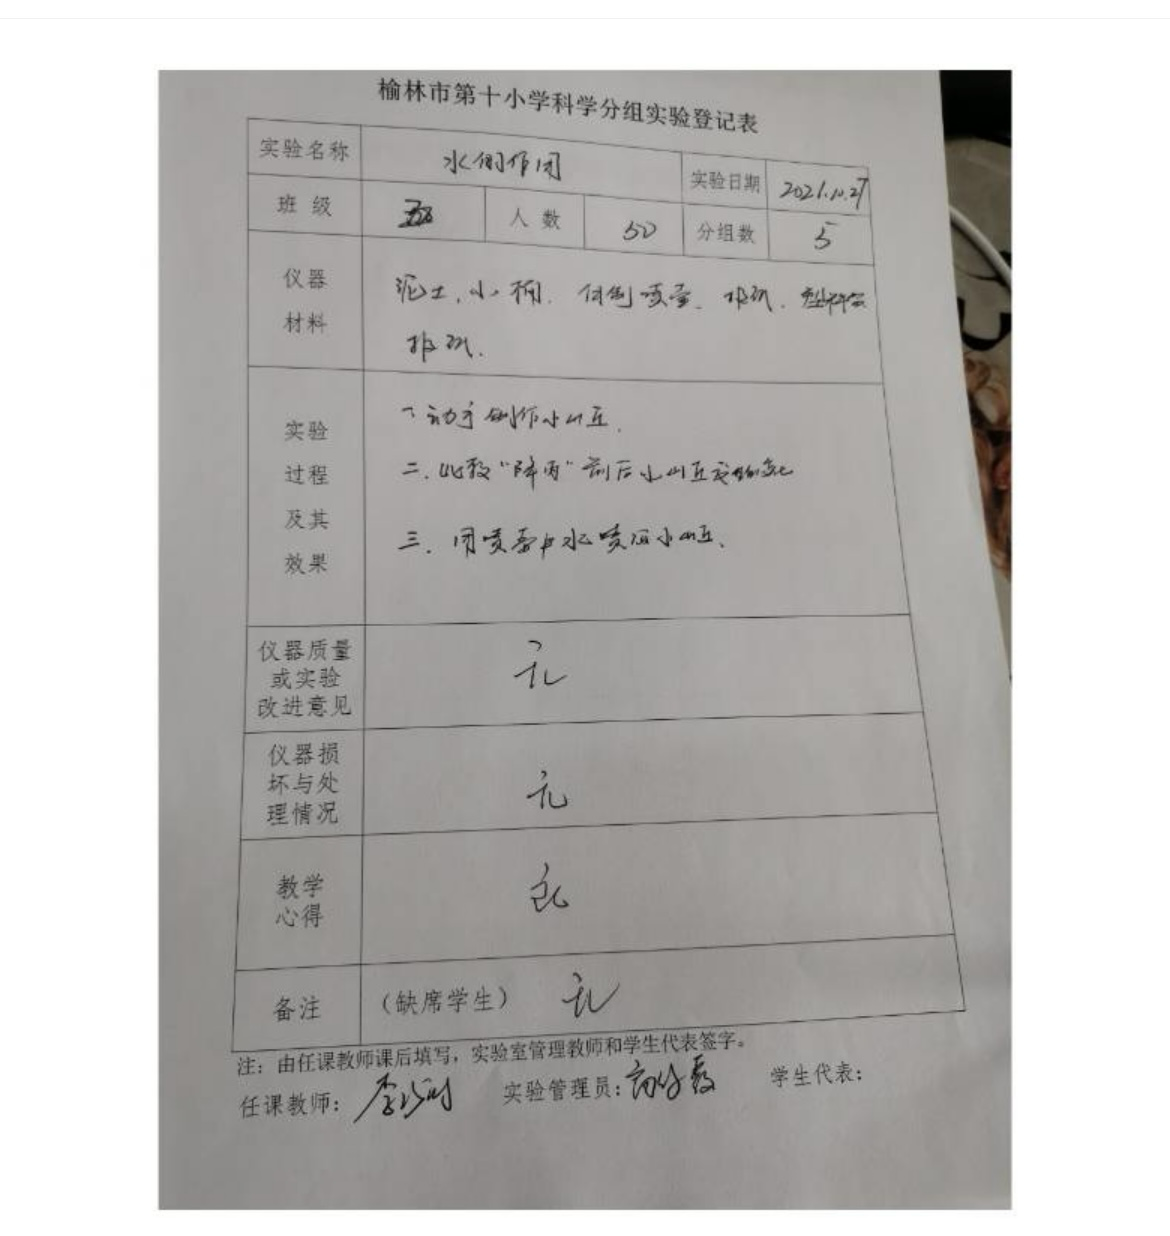 榆林市第十小学科学分组实验登记表
实验名称 水的作用 实验日期 2021.10.27
班级 人数 50 分组数 5
仪器
材料
泥土、小桶、 喷壶、报纸、塑料
报纸、
实验
过程
及其
效果
一、动手制作小山丘、
二、比较“降雨”前后小山丘变化
三、用喷壶 水喷洒小山丘、
仪器质量
或实验
改进意见
无
仪器损
坏与处
理情况
无
教学
心得
无
备注 (缺席学生) 无
注：由任课教师课后填写，实验室管理教师和学生代表签字。
任课教师： 实验管理员： 学生代表：